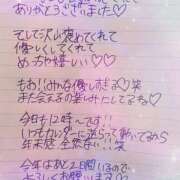 ありがとうございました♡
そして沢山褒めてくれて
優しくしてくれて
めっちゃ嬉しい♡♡
もお!!みんな優しすぎる♡笑
また会えるの楽しみにしてるね♡
今日も12時〜です!!
いつもカレンダーに逆らって動いてるから
年末感 全然ない!!笑
今年はあと2日間いるので